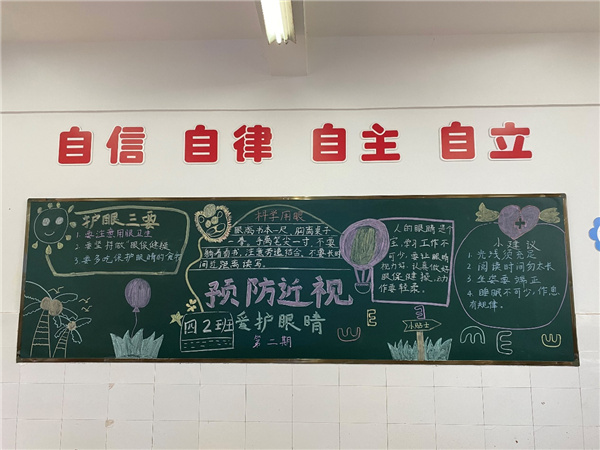 自信 自律 自主 自立
护眼三要
1.要注意用眼卫生
2.要坚持做“眼保健操
3.要多吃保护眼睛的食物
科学用眼
眼离书本一尺，胸离桌子
一拳，手离笔尖一寸，不要
躺着看书，注意劳逸结合，不要长时
间近距离读写。
预防近视
四2班
爱护眼睛
第二期
人的眼睛是个
宝，学习工作不
可少，要让眼睛
视力好，认真做好
眼保健操，动
作要轻柔。
小贴士
E
E
m
E
小建议
1.光线须充足
2.阅读时间勿太长
3.坐姿要端正
4.睡眠不可少，作息
有规律。